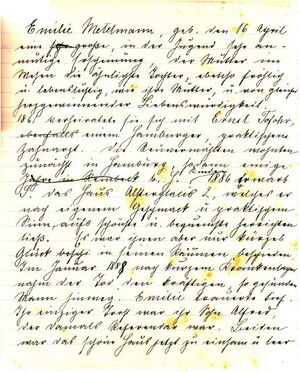 Emilie Metelmann, geb. den 16 April
eine große, in der Jugend sehr an-
mutige Erscheinung. Der Mutter im
Wesen die ähnlichste Tochter, ebenso fröhlig
u. lebenslustig, wie ihre Mutter, u. von gleicher
herzgewinnender Liebenswürdigkeit.
186 verheiratete sie sich mit Ernst
ebenfalls einem Hamburger, praktischem
Zahnarzt. Die Neuvermählten wohnten
zunächst in Hamburg, sodann einige
Jahre in Reinbeck u. 1886 erwarb
er das Haus Alsterglacis 2, welches er
nach eigenem Geschmack u. praktischem
Sinn, aufs schönste u. bequemste herrichten
ließ. Es war ihnen aber nur kurzes
Glück in seinen Räumen beschieden.
Im Januar 1888 nach kurzem Krankenlager
nahm der Tod den kräftigen, so gesunden
Mann hinweg. Emilie trauerte tief.
Ihr einziger Trost war ihr Sohn Alfred,
der damals Referendar war. Beiden
war das schöne Haus jetzt zu einsam u leer